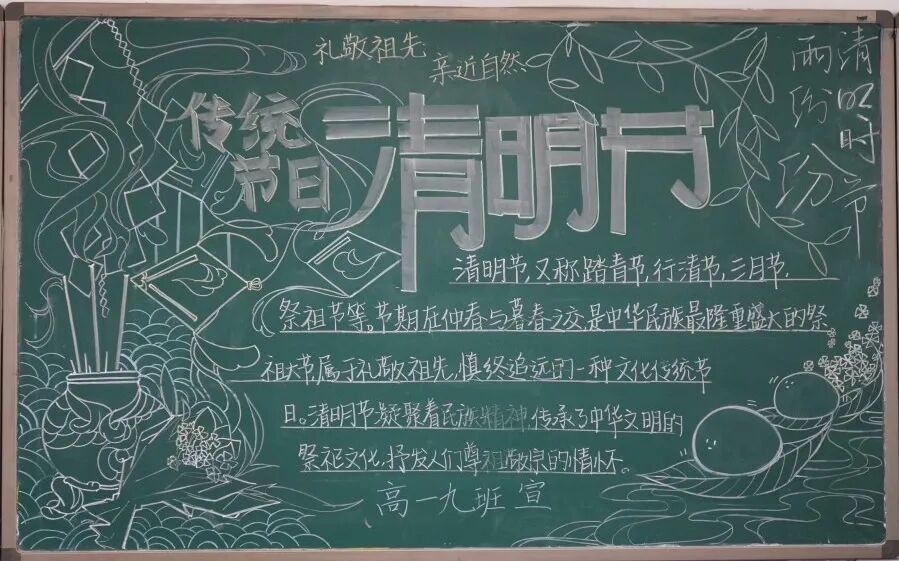 礼敬祖先
亲近自然
传统
节日
清明节
清明时节
雨纷纷
清明节,又称踏青节,行清节,三月节,
祭祖节等。节期在仲春与暮春之交,是中华民族最隆重盛大的祭
祖大节,属于礼敬祖先,慎终追远的一种文化传统节
日。清明节凝聚着民族精神,传承了中华文明的
祭祀文化,抒发人们尊祖敬宗的情怀。
高一九班宣